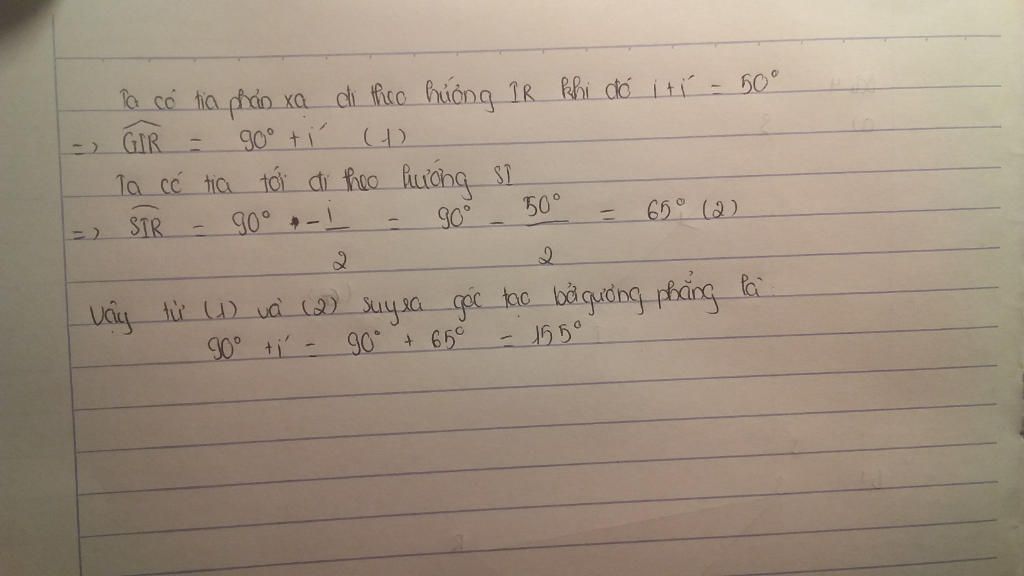 Ta có tia phản xạ đi theo hướng IR khi đó i+i' = 50°
=> GIR = 90° + i' (1)
Ta có tia tới đi theo hướng SI
=> SIR = 90° - i/2 = 90° - 50°/2 = 65° (2)
Vậy từ (1) và (2) suy ra góc tạc bởi gương phẳng là:
90° + i' = 90° + 65° = 155°